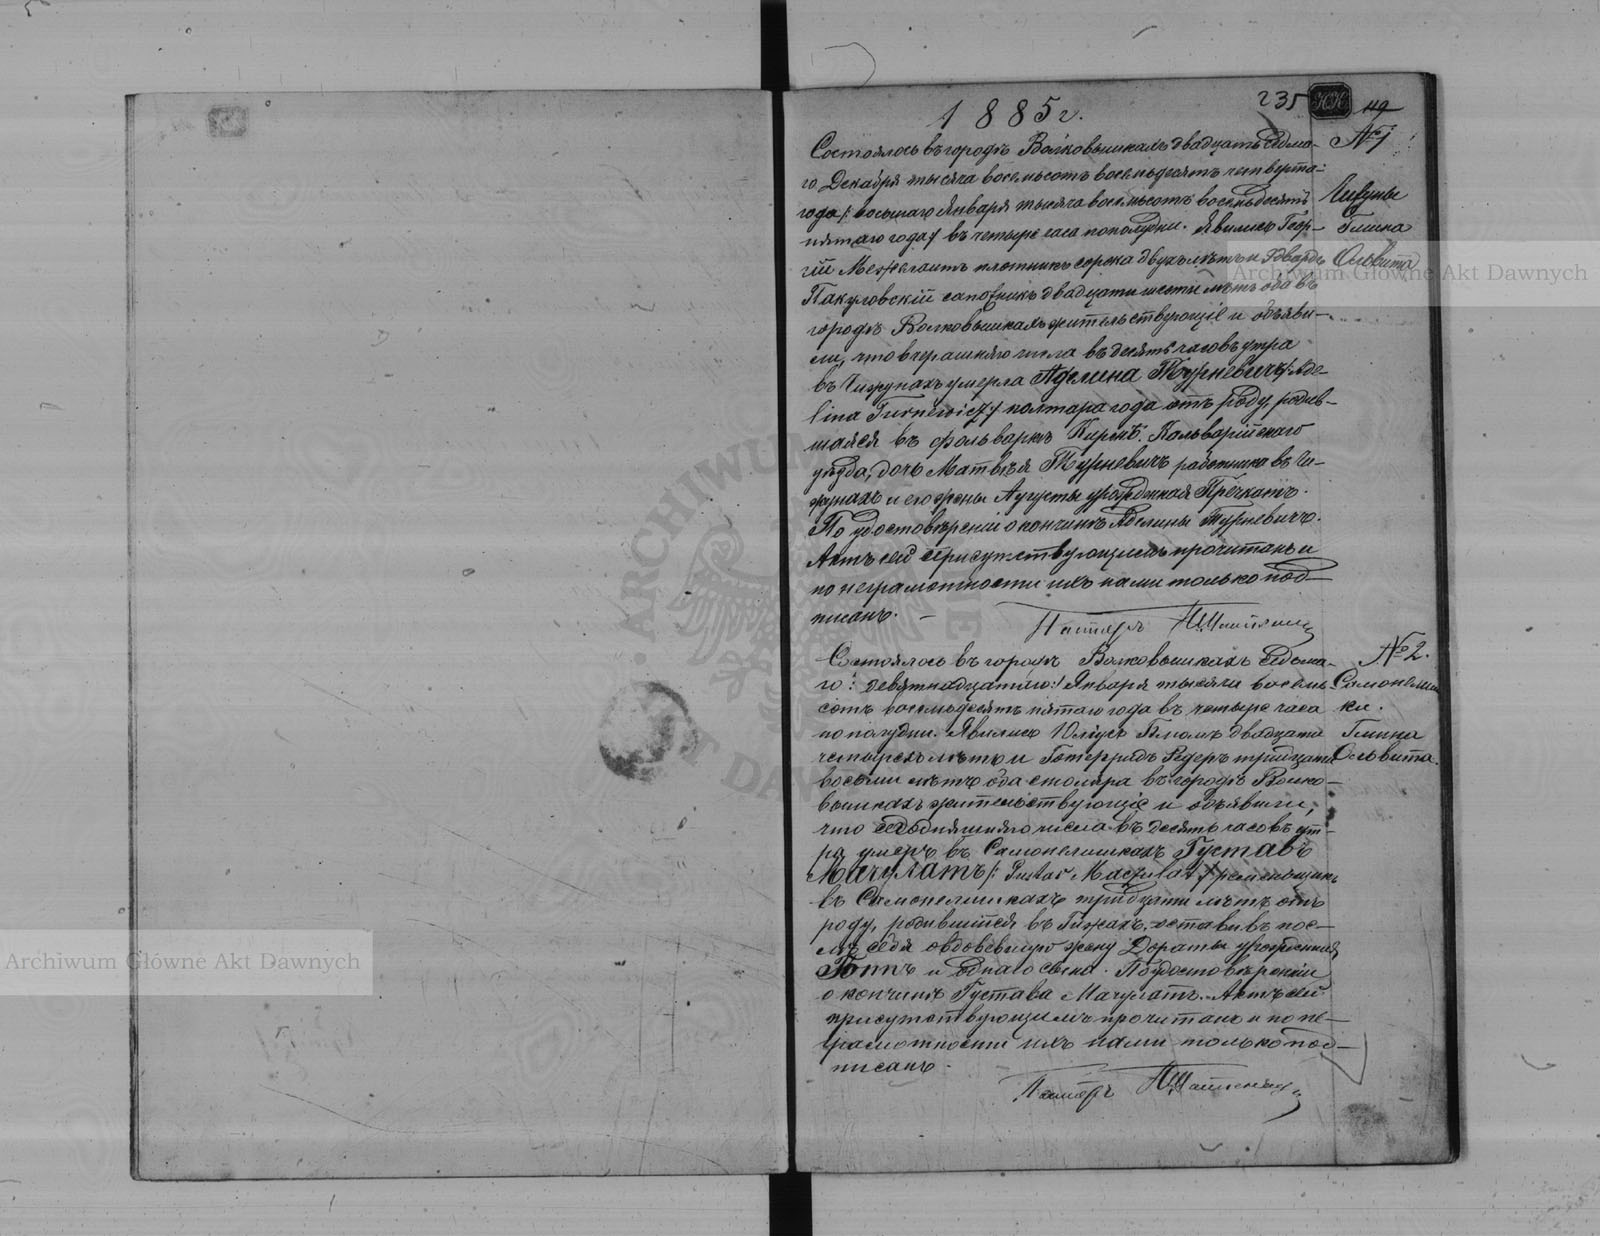 1885 г.
235
НК
№ 1
Состоялось въ городѣ Волковышкахъ двадцать седьма-
го Декабря тысяча восемьсотъ восемьдесятъ четверта-
года /: восьмаго Января тысяча восемьсотъ восемьдесятъ
пятаго года :/ въ четыре часа пополудни. Явились Геор-
гій плотникъ сорока двухъ лѣтъ и Эдвардъ
Пакуловскій сапожникъ двадцати шести лѣтъ оба въ
городѣ Волковышкахъ жительствующіе и объяви-
ли, что вчерашняго числа въ десять часовъ утра
въ Чижунахъ умерла Аделина Турневичъ /: Ade-
lina Turnewicz :/ полтара года отъ роду, родив-
шаяся въ фольваркѣ Кальварійскаго
уѣзда, дочь Матвѣя Турневичъ работника въ Чи-
жунахъ и его жены Аугусты урожденная
По удостовѣреніи о кончинѣ Аделины Турневичъ.
Актъ сей присутствующимъ прочитанъ и
по неграмотности ихъ нами только под-
писанъ. —
Пасторъ
Гмина
Ольвита
№ 2.
Состоялось въ городѣ Волковышкахъ седьма-
го /: девятнадцатаго :/ Января тысяча восемь-
сотъ восемьдесятъ пятаго года въ четыре часа
по полудни. Явились Юліусъ Блюмъ двадцати
четырехъ лѣтъ и Готфридъ Редеръ тридцати
восьми лѣтъ оба столяра въ городѣ Волко-
вышкахъ жительствующіе и объявили,
что сегодняшняго числа въ десять часовъ ут-
ра умеръ въ Самопелишкахъ Густавъ
Мачулатъ /: Gustav Maczulat :/ ремесльщикъ
въ Самопелишкахъ тридцати лѣтъ отъ
роду, родившійся въ Гижахъ, оставивъ пос-
лѣ себя овдовевшую жену Дораты урожденная
и однаго сына. По удостовѣреніи
о кончинѣ Густава Мачулатъ. Актъ сей
присутствующимъ прочитанъ и по не-
грамотности ихъ нами только под-
писанъ.
Пасторъ
Самопелиш-
ки.
Гмина
Ольвита.
Archiwum Główne Akt Dawnych
Archiwum Główne Akt Dawnych